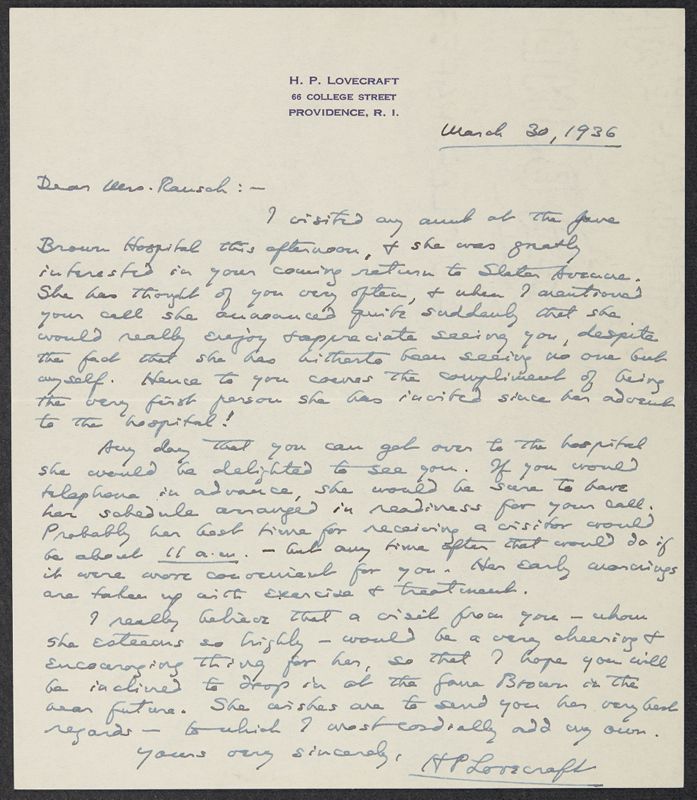 H. P. LOVECRAFT
66 COLLEGE STREET
PROVIDENCE, R. I.
March 30, 1936
Dear Mrs. Rausch:—
I visited my aunt at the Jane
Brown Hospital this afternoon, & she was greatly
interested in your coming return to Slater Avenue.
She has thought of you very often, & when I mentioned
your call she announced quite suddenly that she
would really enjoy & appreciate seeing you, despite
the fact that she has hitherto been seeing no one but
myself. Hence to you comes the compliment of being
the very first person she has invited since her advent
to the hospital!
Any day that you can get over to the hospital
she would be delighted to see you. If you would
telephone in advance, she would be sure to have
her schedule arranged in readiness for your call.
Probably her best time for receiving a visitor would
be about 11 a.m. — but any time after that would do if
it were more convenient for you. Her early mornings
are taken up with exercise & treatment.
I really believe that a visit from you — whom
she esteems so highly — would be a very cheering &
encouraging thing for her, so that I hope you will
be inclined to drop in at the Jane Brown in the
near future. She wishes me to send you her very best
regards — to which I most cordially add my own.
Yours very sincerely,
HPLovecraft